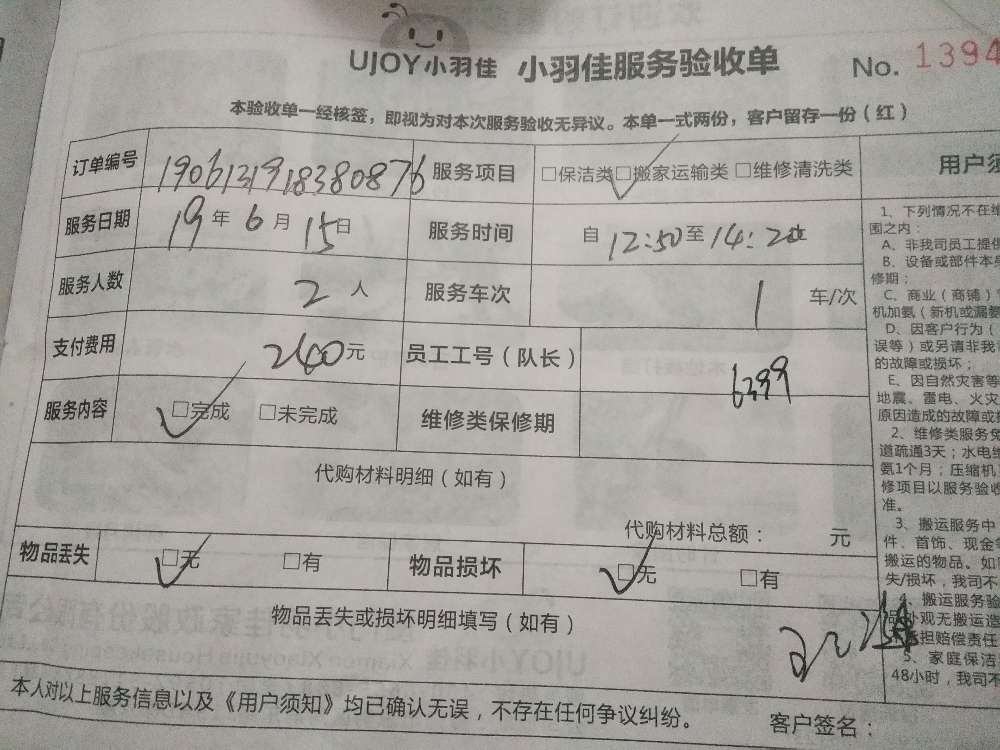 UJOY小羽佳 小羽佳服务验收单 No. 1394
本验收单一经核签，即视为对本次服务验收无异议。本单一式两份，客户留存一份（红）
订单编号 1906131918380876 服务项目 □保洁类□搬家运输类 □维修清洗类
服务日期 19年6月15日 服务时间 自12:50至14:20
服务人数 2人 服务车次 1 车/次
支付费用 260元 员工工号（队长） 6399
服务内容 □完成 □未完成 维修类保修期
代购材料明细（如有）
代购材料总额： 元
物品丢失 □无 □有 物品损坏 □无 □有
物品丢失或损坏明细填写（如有）
本人对以上服务信息以及《用户须知》均已确认无误，不存在任何争议纠纷。 客户签名：
用户须
1、下列情况不在维
围之内：
A、非我司员工提供
B、设备或部件本身
修期；
C、商业（商铺）
机加氨（新机或漏氨
D、因客户行为（
误等）或另请非我
的故障或损坏；
E、因自然灾害等
地震、雷电、火灾
原因造成的故障或损
2、维修类服务免
道疏通3天；水电维
氨1个月；压缩机
修项目以服务验收
准。
3、搬运服务中
件、首饰、现金等
搬运的物品。如
失/损坏，我司不
4、搬运服务验
品外观无搬运造
担赔偿责任
5、家庭保洁
48小时，我司不